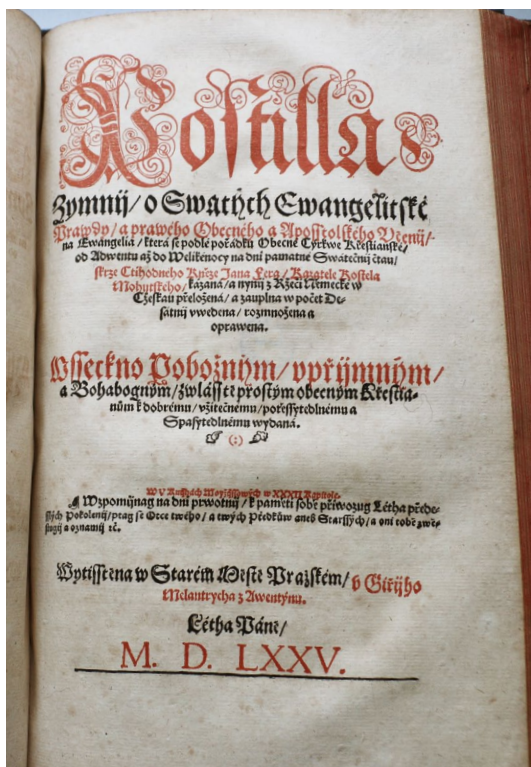 Postilla
Zymnij / o Swatých Ewangelitské
Prawdy / a prawého Obecného a Aposstolského Včenij / 
na Ewangelia / která se podlé pořádku Obecné Cyrkwe Křestianské /
od Adwentu až do Welikénocy na dni pamatné Swátečnij čtau /
skrze Ctihodného Kněze Jana Fera / Kazatele Kostela
Mohutského / kázaná / a nynij z Ržeči Německé w
Cžeskau přeložená / a zauplna w počet De-
sátnij vwedena / rozmnožena a
oprawena.
Wsseckno Pobožným / vpřijmným /
a Bohabogným / zwlásstě prostým obecným Křestia-
nům k dobrému / vžitečnému / potěssytedlnému a
Spasytedlnému wydaná.
(:)
W V Knihách Moyžissowých w XXXII Kapitole.
Wzpomijnag na dni prwotnij / k paměti sobě přiwozug Létha přede-
sslých Pokolenij / ptag se Otce twého / a twých Předkůw aneb Starssých / a oni tobě zwě-
stugij a oznámij rč.
Wytisstěna w Starém Městě Pražském / v Giřijho
Melantrycha z Awentýnu.
Létha Páně /
M. D. LXXV.